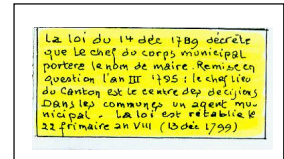 La loi du 14 déc 1789 décrète
que le chef du corps municipal
portera le nom de maire. Remise en
question l'an III 1795 : le chef lieu
du Canton est le centre des décisions
Dans les communes un agent mu-
nicipal. La loi est rétablie le
22 frimaire an VIII (13 déc 1799)